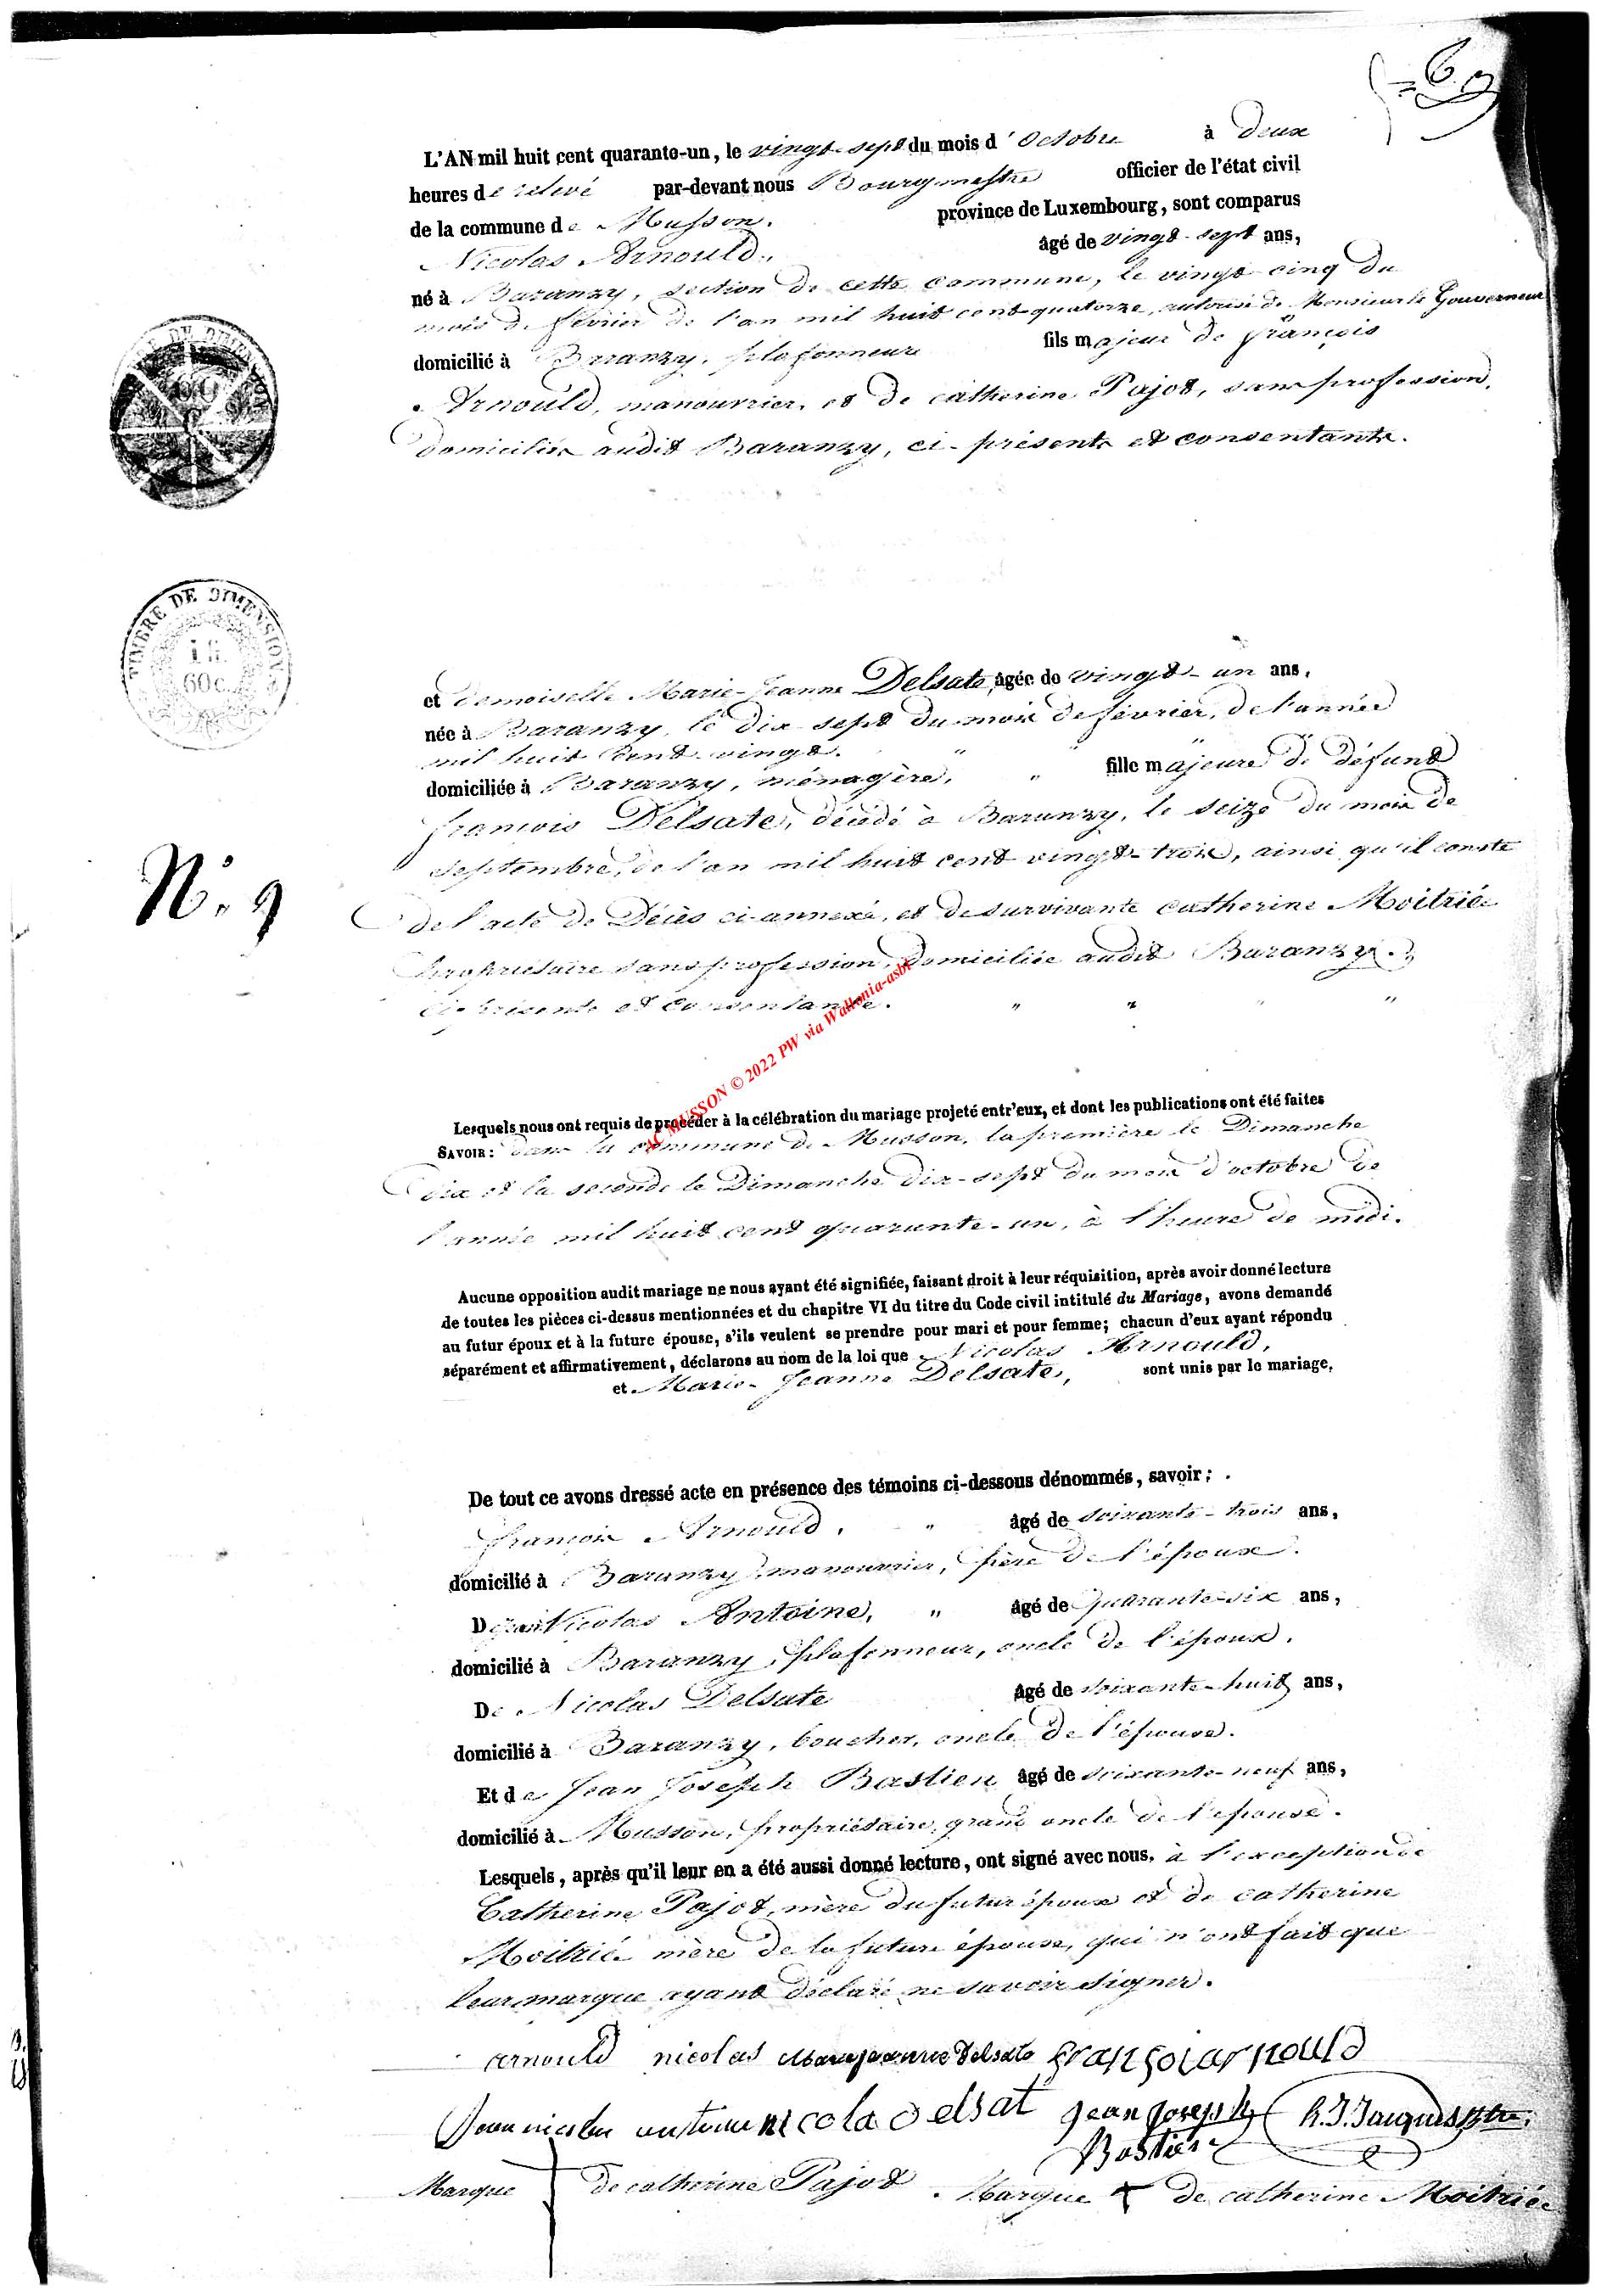 L'AN mil huit cent quarante-un, le vingt-sept du mois d'octobre à deux
heures de relevé par-devant nous Bourgmestre officier de l'état civil
de la commune de Musson. province de Luxembourg, sont comparus
Nicolas Arnould, âgé de vingt-sept ans,
né à Baranzy, section de cette commune, le vingt-cinq du
mois de février de l'an mil huit cent quatorze, autorisé de Monsieur le Gouverneur
domicilié à Baranzy, plafonneur fils majeur de françois
Arnould, manouvrier, et de catherine Pajot, sans profession,
domiciliés audit Baranzy, ci-présents et consentants.
TIMBRE DE DIMENSION
60 c.
et demoiselle Marie-Jeanne Delsate, âgée de vingt-un ans,
née à Baranzy, le dix-sept du mois de février, de l'année
mil huit cent vingt.
domiciliée à Baranzy, ménagère, fille majeure de défunt
françois Delsate, décédé à Baranzy, le seize du mois de
septembre, de l'an mil huit cent vingt-trois, ainsi qu'il conste
N° 9
de l'acte de Décès ci-annexé, et de survivante catherine Moitrié
propriétaire sans profession, domiciliée audit Baranzy.
ci-présente et consentante.
AC MUSSON © 2022 PW via Wallonia-asbl
Lesquels nous ont requis de procéder à la célébration du mariage projeté entr'eux, et dont les publications ont été faites
SAVOIR: dans la commune de Musson, la première le Dimanche
dix et la seconde le Dimanche dix-sept du mois d'octobre de
l'année mil huit cent quarante-un, à l'heure de midi.
Aucune opposition audit mariage ne nous ayant été signifiée, faisant droit à leur réquisition, après avoir donné lecture
de toutes les pièces ci-dessus mentionnées et du chapitre VI du titre du Code civil intitulé du Mariage, avons demandé
au futur époux et à la future épouse, s'ils veulent se prendre pour mari et pour femme; chacun d'eux ayant répondu
séparément et affirmativement, déclarons au nom de la loi que Nicolas Arnould,
et Marie-Jeanne Delsate, sont unis par le mariage.
De tout ce avons dressé acte en présence des témoins ci-dessous dénommés, savoir:
françois Arnould, âgé de soixante-trois ans,
domicilié à Baranzy, manouvrier, père de l'époux.
De Jean Nicolas Antoine, âgé de quarante-six ans,
domicilié à Baranzy, plafonneur, oncle de l'époux.
De Nicolas Delsate âgé de soixante-huit ans,
domicilié à Baranzy, boucher, oncle de l'épouse.
Et de Jean Joseph Bastien âgé de soixante-neuf ans,
domicilié à Musson, propriétaire, grand oncle de l'épouse.
Lesquels, après qu'il leur en a été aussi donné lecture, ont signé avec nous. à l'exception de
Catherine Pajot, mère du futur époux et de catherine
Moitrié mère de la future épouse, qui n'ont fait que
leur marque ayant déclaré ne savoir signer.
arnould nicolas Marie jeanne Delsate françoi arnould
Jean nicolas antoine nicola delsat jean joseph Bastien h. J. Jacques Btre.
Marque de catherine Pajot. Marque de catherine Moitrié